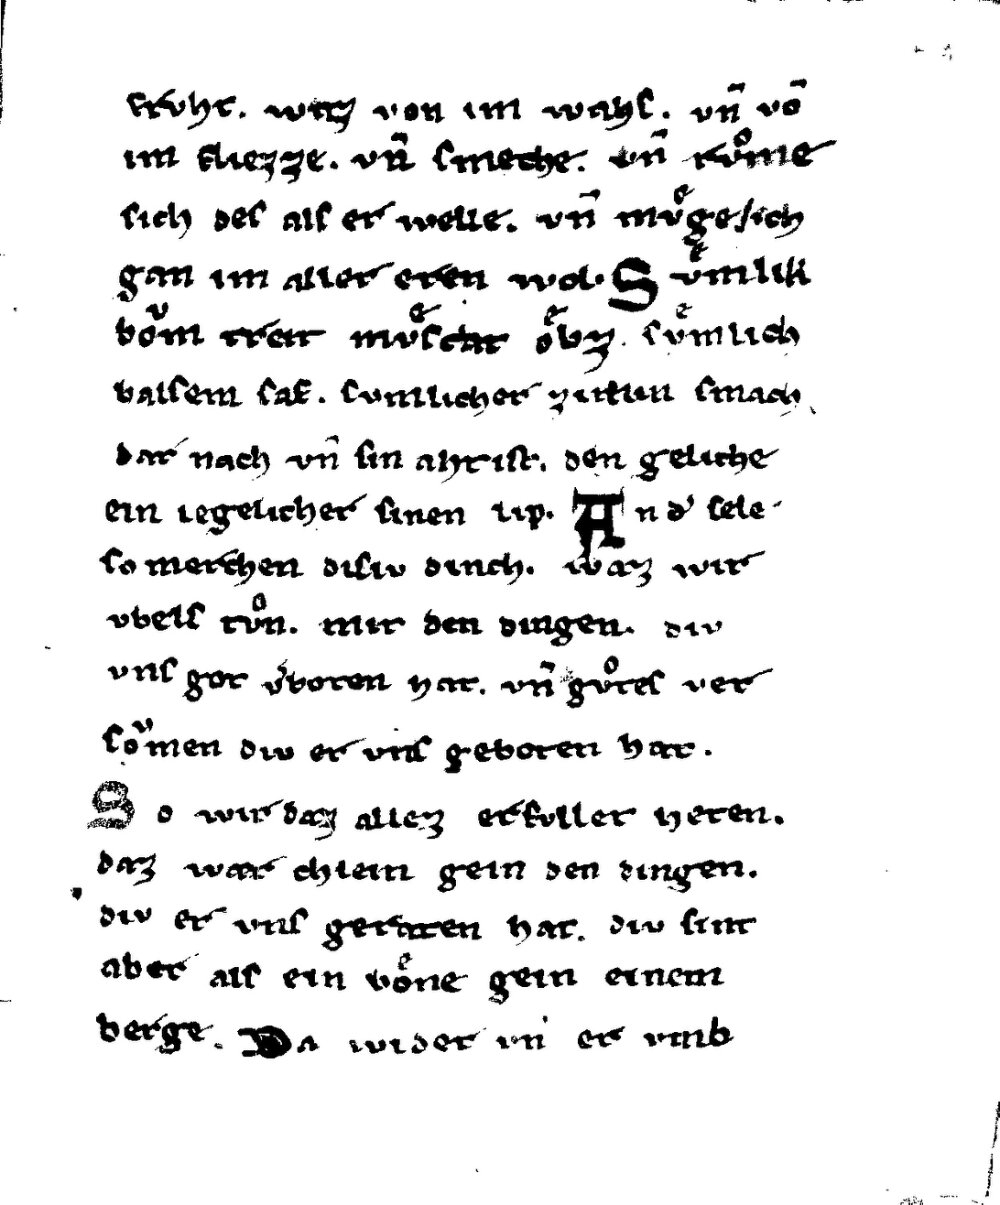 fruht. waz von im wahſ. vn̄ vō
im fliezze. vn̄ ſmeche. vn̄ růme
ſich deſ alſ er welle. vn̄ mvͤge ſich
gan im aller eren wol. Svͤmlik
boͮm treit mvͤſchat oͤbz. ſvͤmlich
balſem ſaf. ſvmlicher zitbin ſmach
dar nach vn̄ ſin ahr iſt. den geliche
ein iegelicher ſinen lip. An d' ſele
ſo merchen diſiv dinch. waz wir
vbelſ tvͦn. mit den dingen. div
vnſ got v̓boten hat. vn̄ gvͦteſ ver
ſoͮmen div er vnſ geboten hat.
So wir daz allez erfvllet heten.
daz wær chlein gein den dingen.
div er vnſ geraten hat. div ſint
aber alſ ein boͤne gein einem
berge. Da wider vn̄ er vmb